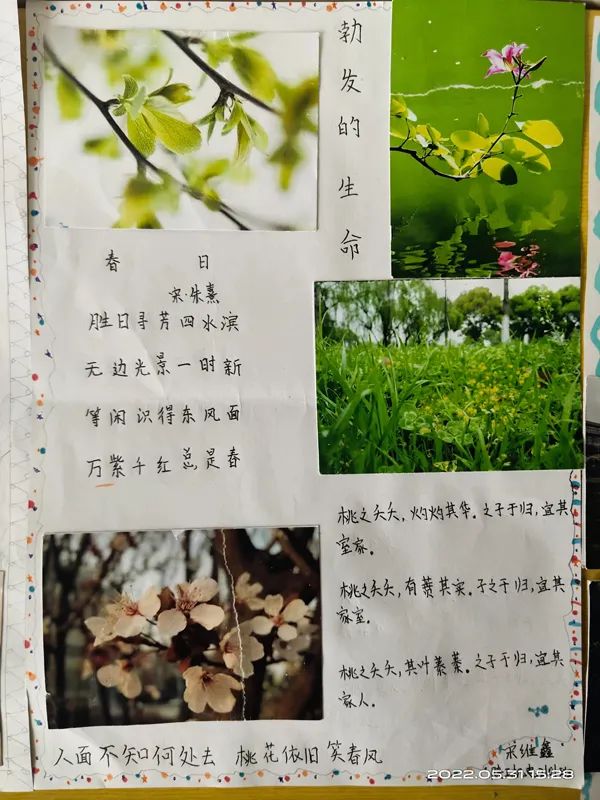 勃发的生命
春日
宋·朱熹
胜日寻芳四水滨
无边光景一时新
等闲识得东风面
万紫千红总是春
桃之夭夭，灼灼其华。之子于归，宜其
室家。
桃之夭夭，有蕡其实。子之于归，宜其
家室。
桃之夭夭，其叶蓁蓁。之子于归，宜其
家人。
人面不知何处去 桃花依旧笑春风
宋维鑫
2022.05.31 15:28